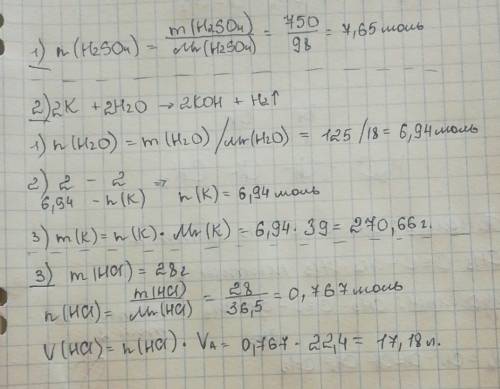 1) n(H2SO4) = m(H2SO4)/Mr(H2SO4) = 750/98 = 7,65 моль
2) 2K + 2H2O → 2KOH + H2↑
1) n(H2O) = m(H2O)/Mr(H2O) = 125/18 = 6,94 моль
2) 2 – 2 ⇒
6,94 – n(K) n(K) = 6,94 моль
3) m(K) = n(K) · Mr(K) = 6,94 · 39 = 270,66 г.
3) m(HCl) = 28 г
n(HCl) = m(HCl)/Mr(HCl) = 28/36,5 = 0,767 моль
V(HCl) = n(HCl) · VA = 0,767 · 22,4 = 17,18 л.